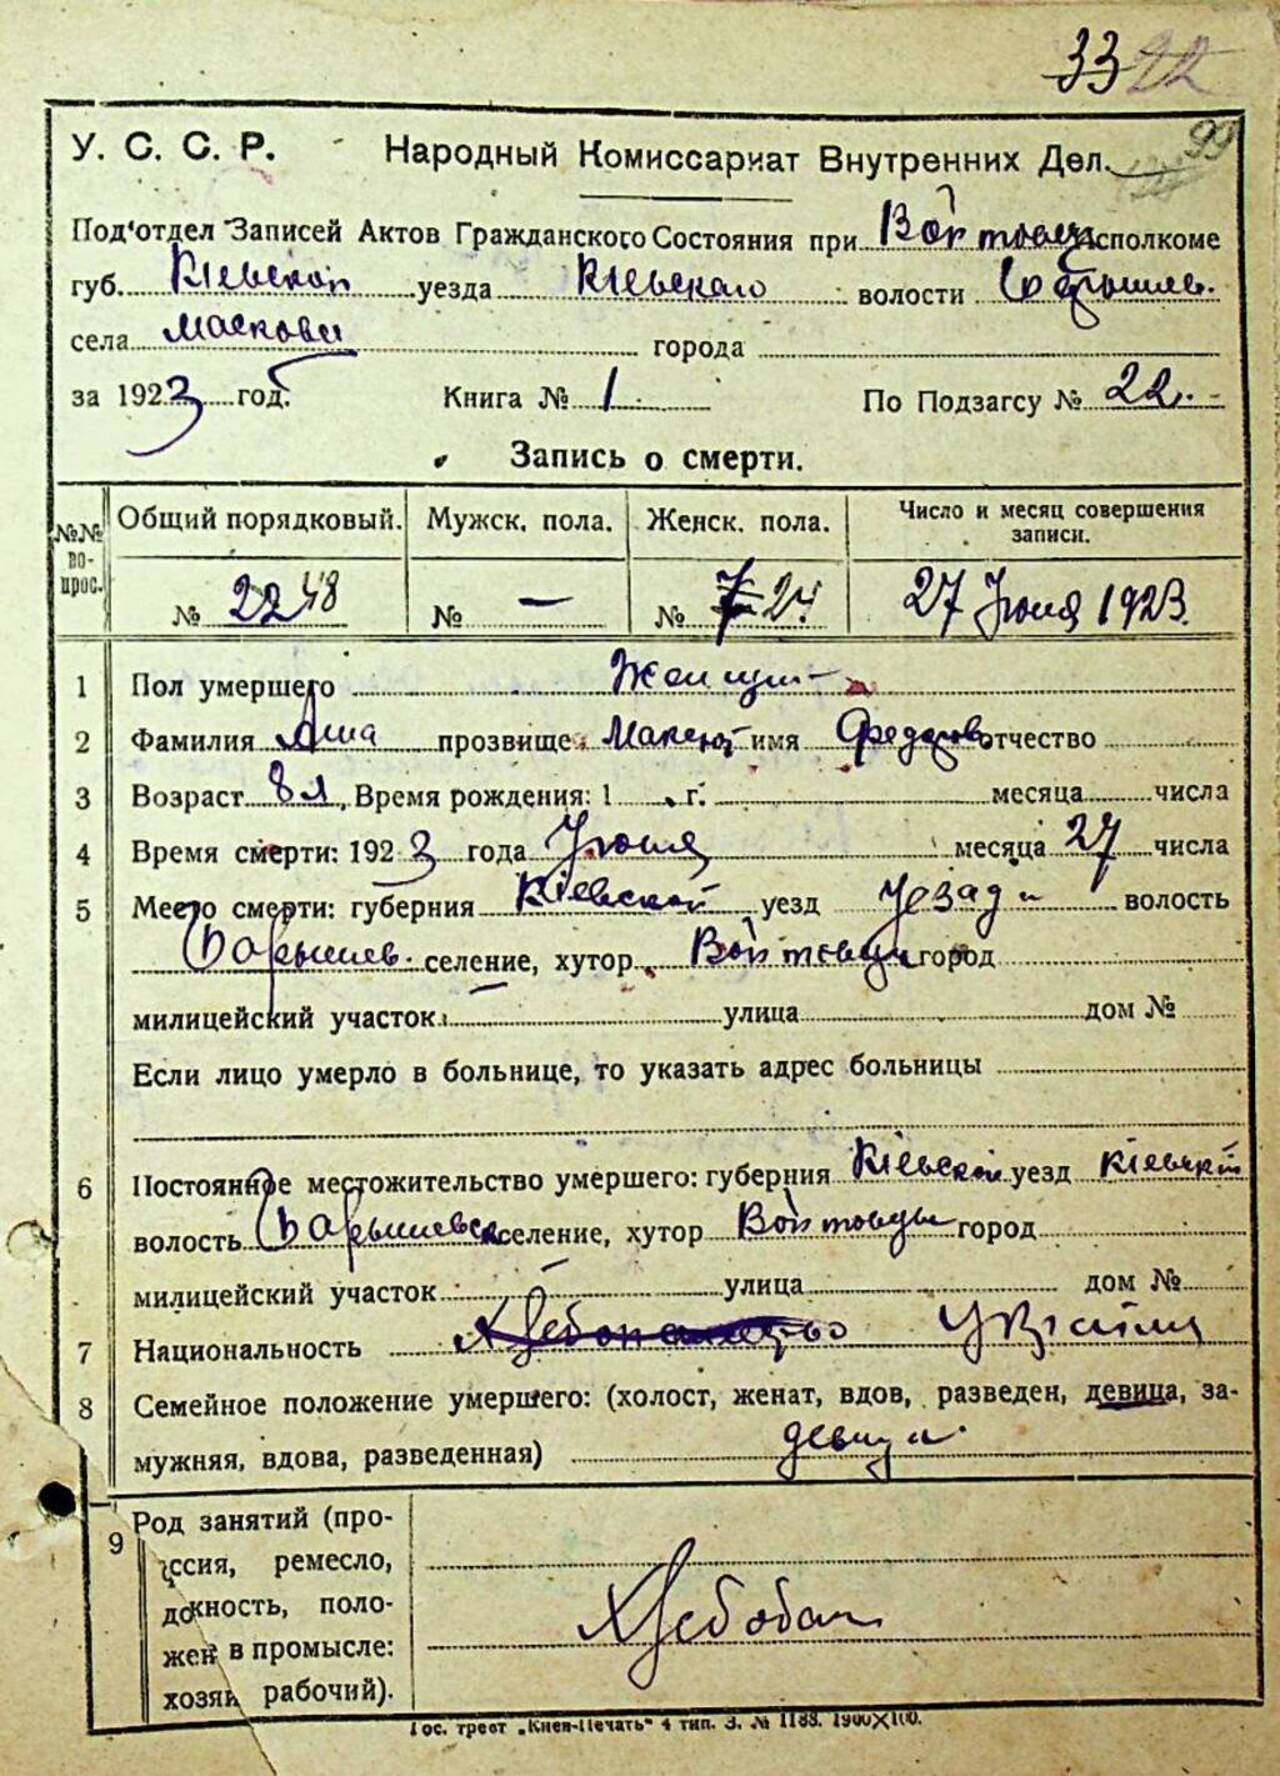 33 22
99
У. С. С. Р. Народный Комиссариат Внутренних Дел.
Под'отдел Записей Актов Гражданского Состояния при Войтовец Исполкоме
губ. Кіевской уезда Кіевскаго волости
села города
за 1923 год. Книга № 1 По Подзагсу № 22.
Запись о смерти.
№№ вопрос. Общий порядковый. Мужск. пола. Женск. пола. Число и месяц совершения записи.
№ 22 48 № — № 7 24 27 Июня 1923.
1 Пол умершего
2 Фамилия прозвище имя отчество
3 Возраст 8 л. Время рождения: 1 г. месяца числа
4 Время смерти: 1923 года Июня месяца 27 числа
5 Место смерти: губерния Кіевской уезд волость
Барышев. селение, хутор Войтовцы город
милицейский участок улица дом №
Если лицо умерло в больнице, то указать адрес больницы
6 Постоянное местожительство умершего: губерния Кіевской уезд Кіевский
волость селение, хутор Войтовцы город
милицейский участок улица дом №
7 Национальность
8 Семейное положение умершего: (холост, женат, вдов, разведен, девица, за-
мужняя, вдова, разведенная) девица
9 Род занятий (про-
ссия, ремесло,
должность, поло-
жен в промысле:
хозяи рабочий).
Гос. трест „Киев-Печать" 4 тип. З. № 1188. 1900X100.